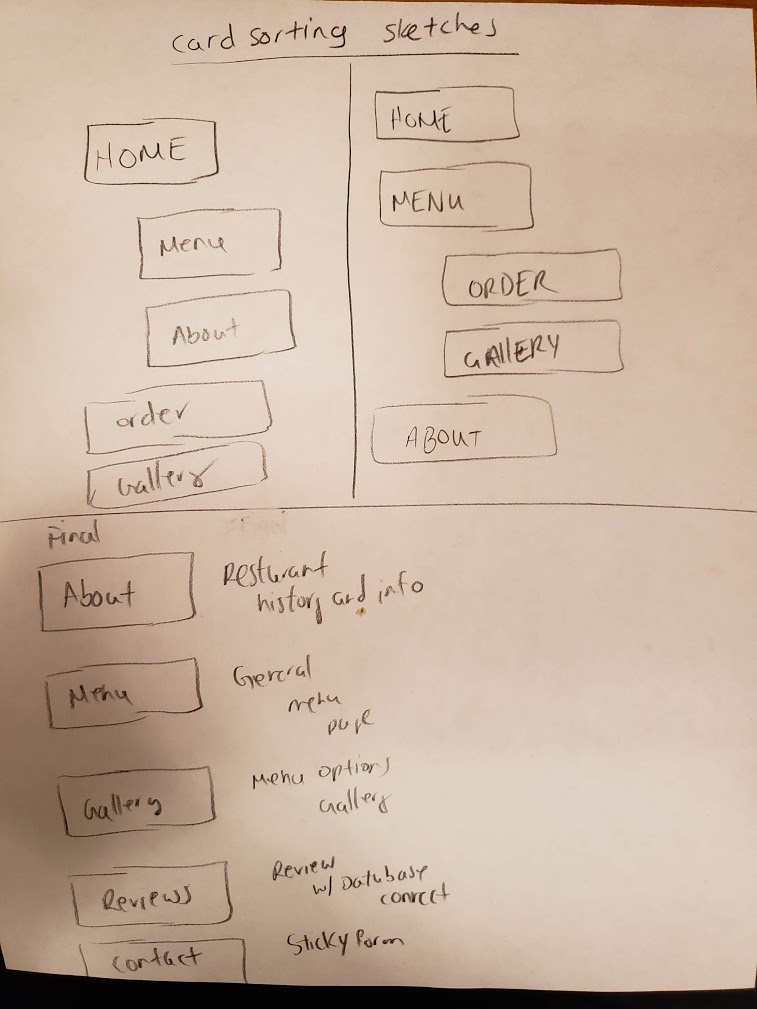 card sorting sketches
HOME
Menu
About
order
Gallery
HOME
MENU
ORDER
GAllERY
ABOUT
Final
About
Resturant
history and info
Menu
General
menu
page
Gallery
Menu options
Gallery
Reviews
Review
w/ Database
connect
contact
Sticky Form